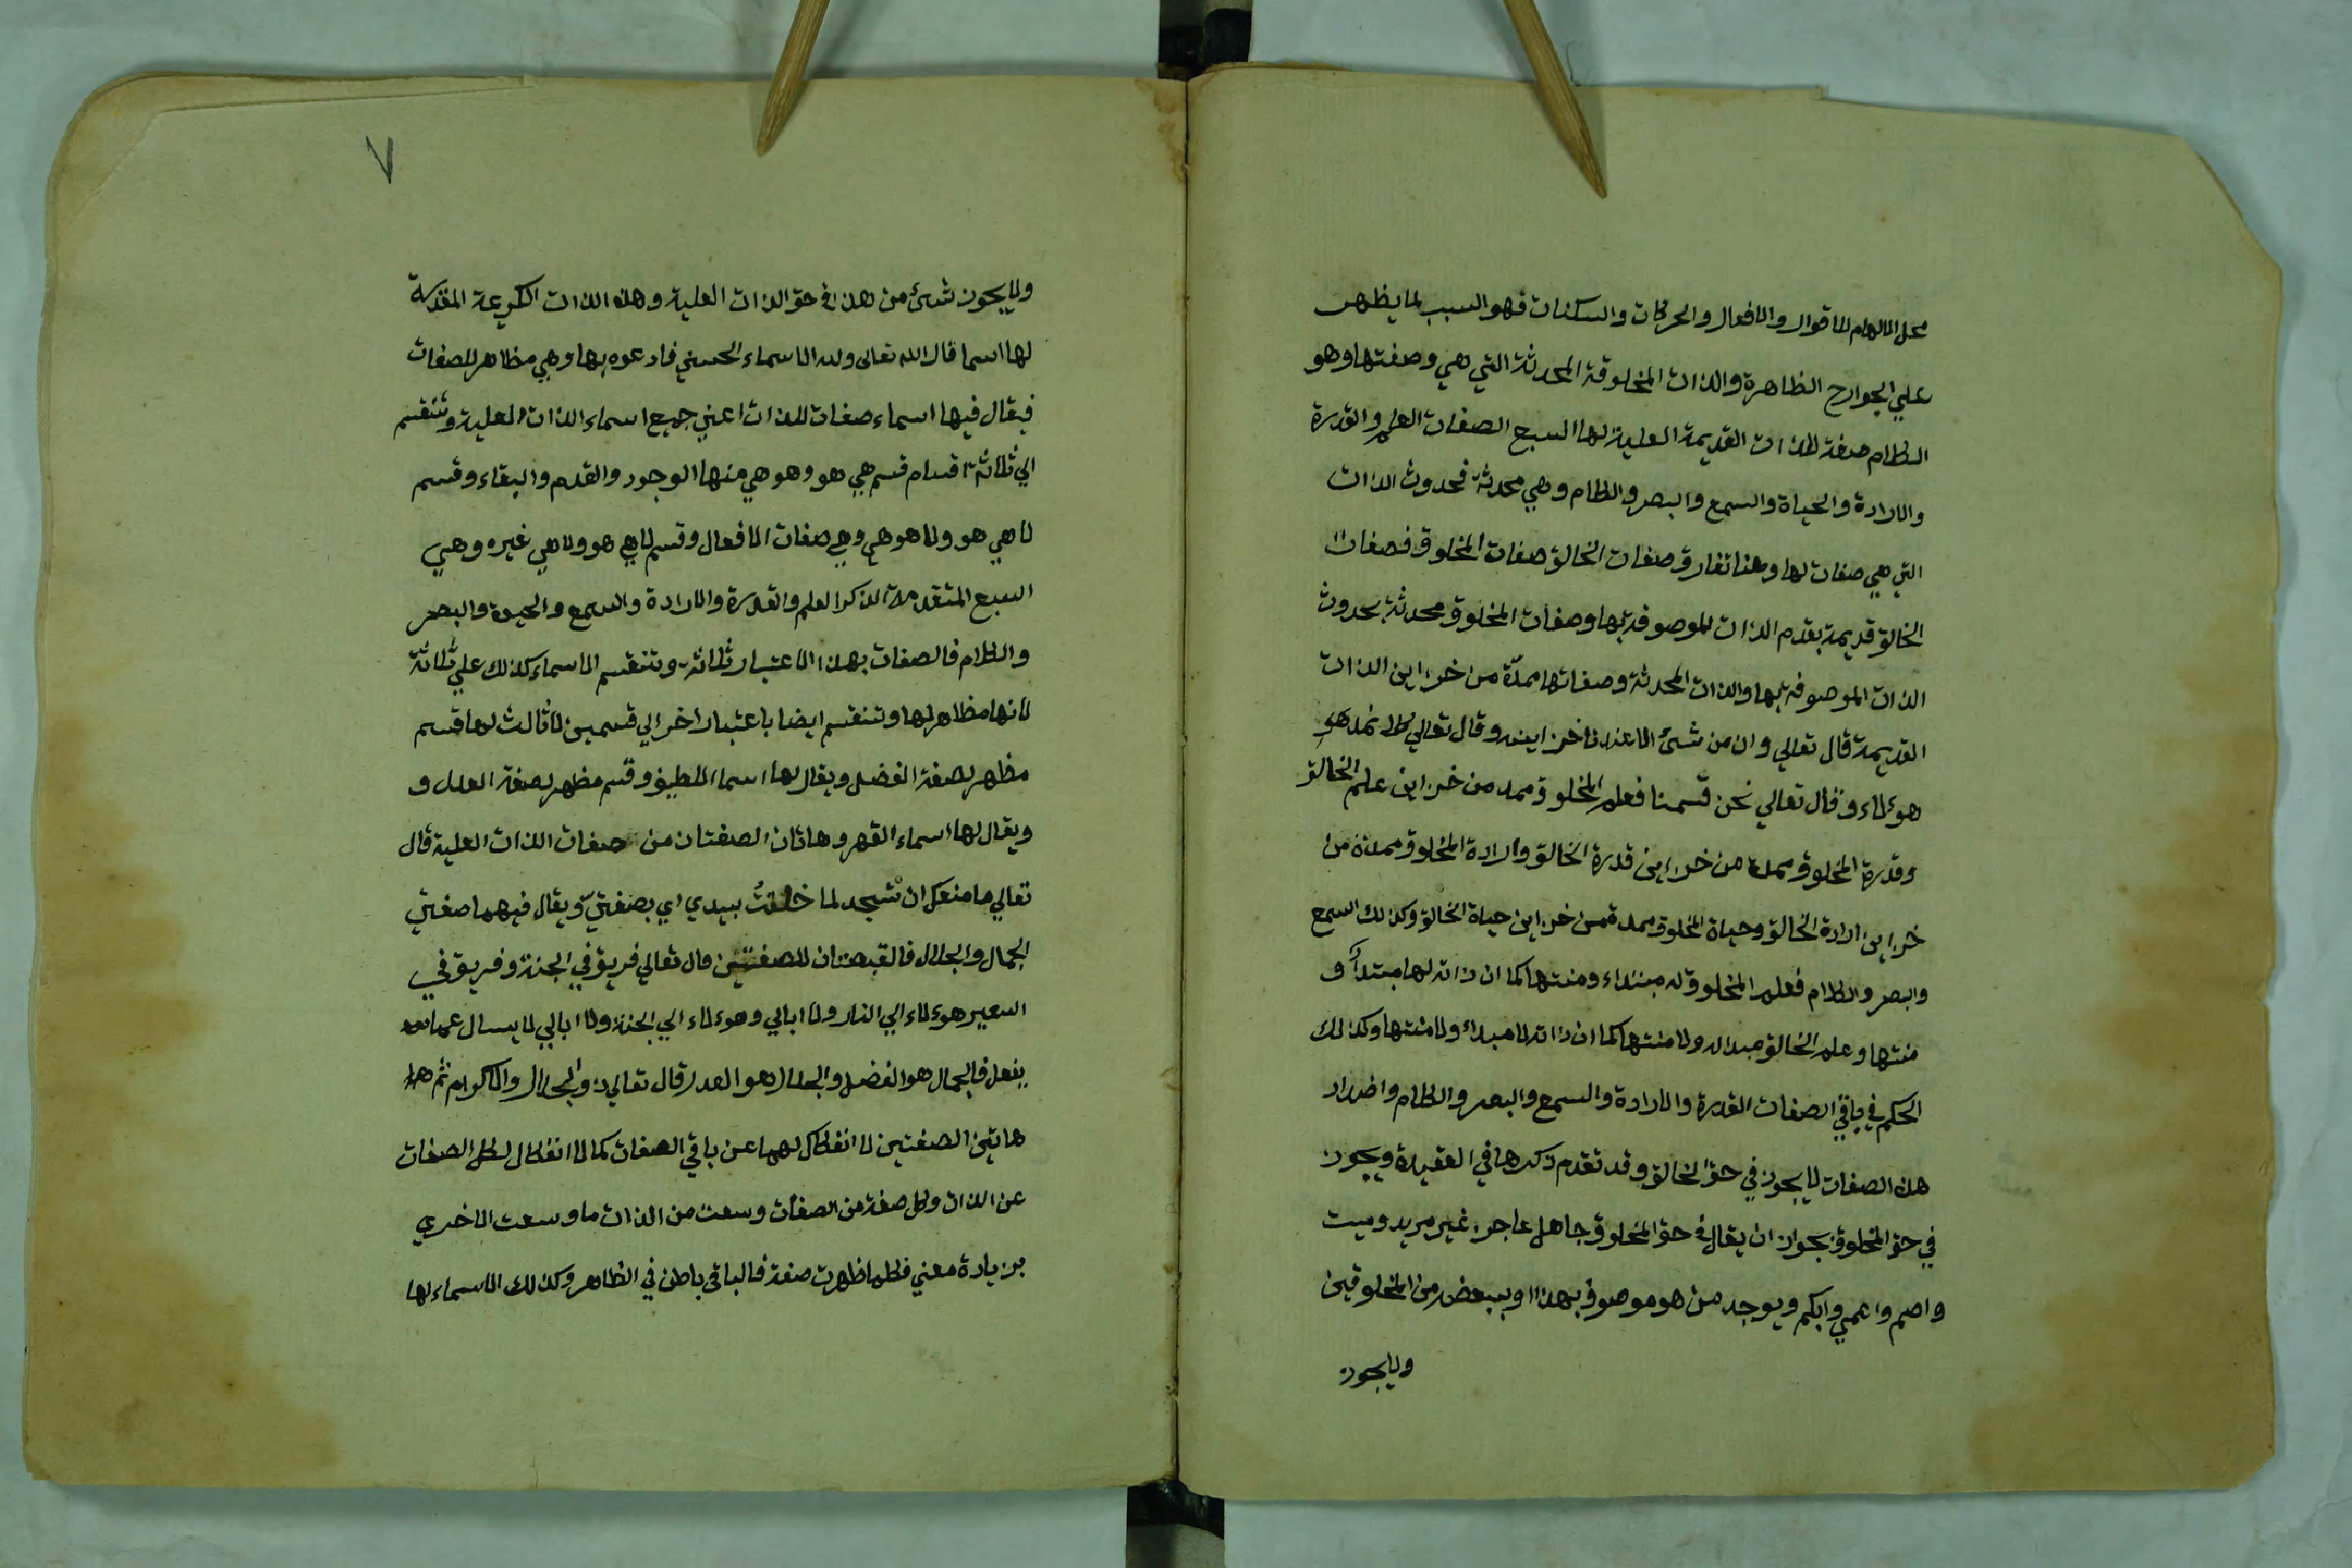 محل الالهام للاقوال والافعال والحركات والسكنات فهو السبب لما يظهر
علي الجوارح الظاهرة والذات المخلوقة المحدثة التي هي وصفتها وهو
الكلام صفة للذات القديمة العلية لها السبع الصفات العلم والقدرة
والارادة والحياة والسمع والبصر والكلام وهي محدثة فحدوث الذات
التي هي صفات لها وهنا تفارق صفات الخالق صفات المخلوق فصفات
الخالق قديمة بقدم الذات الموصوفة بها وصفات المخلوق محدثة بحدوث
الذات الموصوفة بها والذات المحدثة وصفاتها ممدة من خزاين الذات
القديمة قال تعالي وان من شئ الا عندنا خزاينه وقال تعالي كلا نمد هو
هوءلاء وقال تعالي نحن قسمنا فعلم المخلوق ممد من خزاين علم الخالق
وقدرة المخلوق ممدة من خزاين قدرة الخالق وارادة المخلوق ممدة من
خزاين ارادة الخالق وحياة المخلوق ممدة من خزاين حياة الخالق وكذلك السمع
والبصر والكلام فعلم المخلوق له مبتداء ومنتها كما ان ذاته لها مبتدأ و
منتها وعلم الخالق مبداله ولا منتها كما ان ذاته لا مبداء ولا منتها وكذلك
الحكم في باقي الصفات القدرة والارادة والسمع والبصر والكلام واضداد
هذه الصفات لا يجوز في حق الخالق وقد تقدم ذكرها في العقيدة ويجوز
في حق المخلوق بجواز ان يقال في حق المخلوق جاهل عاجز غير مريد وميت
واصم واعمي وابكم ويوجد من هو موصوف بهذا او ببعض من المخلوقين
ولا يجوز
٧
ولا يجوز شئ من هذا في حق الذات العلية وهذه الذات الكريمة المقدسة
لها اسما قال الله تعالى ولله الاسماء الحسني فادعوه بها وهي مظاهر للصفات
فيقال فيها اسماء صفات للذات اعني جميع اسماء الذات العلية وتنقسم
الي ثلاثة اقسام قسم هي هو وهو هي منها الوجود والقدم والبقاء وقسم
لا هي هو ولا هو هي وهي صفات الافعال وقسم لا هي هو ولا هي غيره وهي
السبع المتقدمة الذكر العلم والقدرة والارادة والسمع والحيوة والبصر
والكلام فالصفات بهذا الاعتبار ثلاثة وتنقسم الاسماء كذلك علي ثلاثة
لانها مظاهر لها وتنقسم ايضا باعتبار اخر الي قسمين لا ثالث لها قسم
مظهر لصفة الفضل ويقال لها اسما اللطيف وقسم مظهر لصفة العدل و
ويقال لها اسماء القهر وهاتان الصفتان من صفات الذات العلية قال
تعالي ما منعك ان تسجد لما خلقت بيدي اي بصفتيّ ويقال فيهما صفتي
الجمال والجلال فالقبضتان للصفتين قال تعالي فريق في الجنة وفريق في
السعير هوءلاء الي النار ولا ابالي وهوءلاء الي الجنة ولا ابالي لا يسال عما
يفعل فالجمال هو الفضل والجلال هو العدل قال تعالي ذو الجلال والاكرام ثم
هاتين الصفتين لا انفكاك لهما عن باقي الصفات كما لا انفكاك لكل الصفات
عن الذات وكل صفة من الصفات وسعت من الذات ما وسعت الاخري
بزيادة معني فكلما ظهرت صفة فالباقي باطن في الظاهر وكذلك الاسماء لها